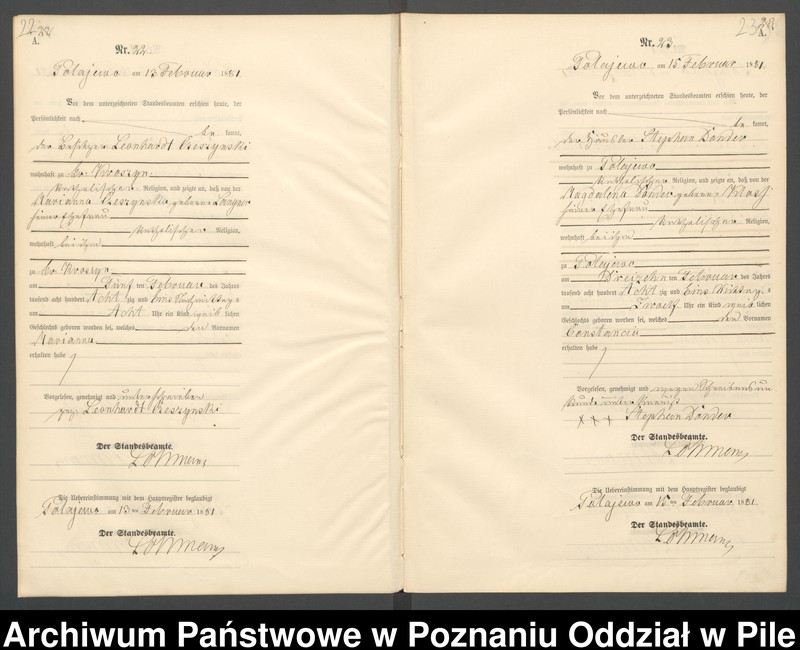 22
A.
Nr. 22.
Polajewo am 13 Februar 1881.
Vor dem unterzeichneten Standesbeamten erschien heute, der
Persönlichkeit nach
be kannt,
der Besitzer Leonhardt
wohnhaft zu
katholischer Religion, und zeigte an, daß von der
Marianna geborene
seiner Ehefrau
katholischer Religion,
wohnhaft bei ihm
zu
am Fünf ten Februar des Jahres
tausend acht hundert Acht zig und Eins Nachmittags
um Acht Uhr ein Kind weib lichen
Geschlechts geboren worden sei, welches den Vornamen
Marianna
erhalten habe
Vorgelesen, genehmigt und unterschrieben
gez. Leonhardt
Der Standesbeamte.
Die Uebereinstimmung mit dem Hauptregister beglaubigt
Polajewo am 13 ten Februar 1881
Der Standesbeamte.
23
A.
Nr. 23.
Polajewo am 15 Februar 1881.
Vor dem unterzeichneten Standesbeamten erschien heute, der
Persönlichkeit nach
be kannt,
der Häusler Stephan Dander
wohnhaft zu Polajewo
katholischer Religion, und zeigte an, daß von der
Magdalena Dander geborene
seiner Ehefrau
katholischer Religion,
wohnhaft bei ihm
zu Polajewo
am Dreizehn ten Februar des Jahres
tausend acht hundert Acht zig und Eins Mittags
um Zwoelf Uhr ein Kind weib lichen
Geschlechts geboren worden sei, welches den Vornamen
Constancia
erhalten habe
Vorgelesen, genehmigt und wegen Schreibensun
kunde unterkreuzt
+ + + Stephan Dander
Der Standesbeamte.
Die Uebereinstimmung mit dem Hauptregister beglaubigt
Polajewo am 15 ten Februar 1881
Der Standesbeamte.
Archiwum Państwowe w Poznaniu Oddział w Pile